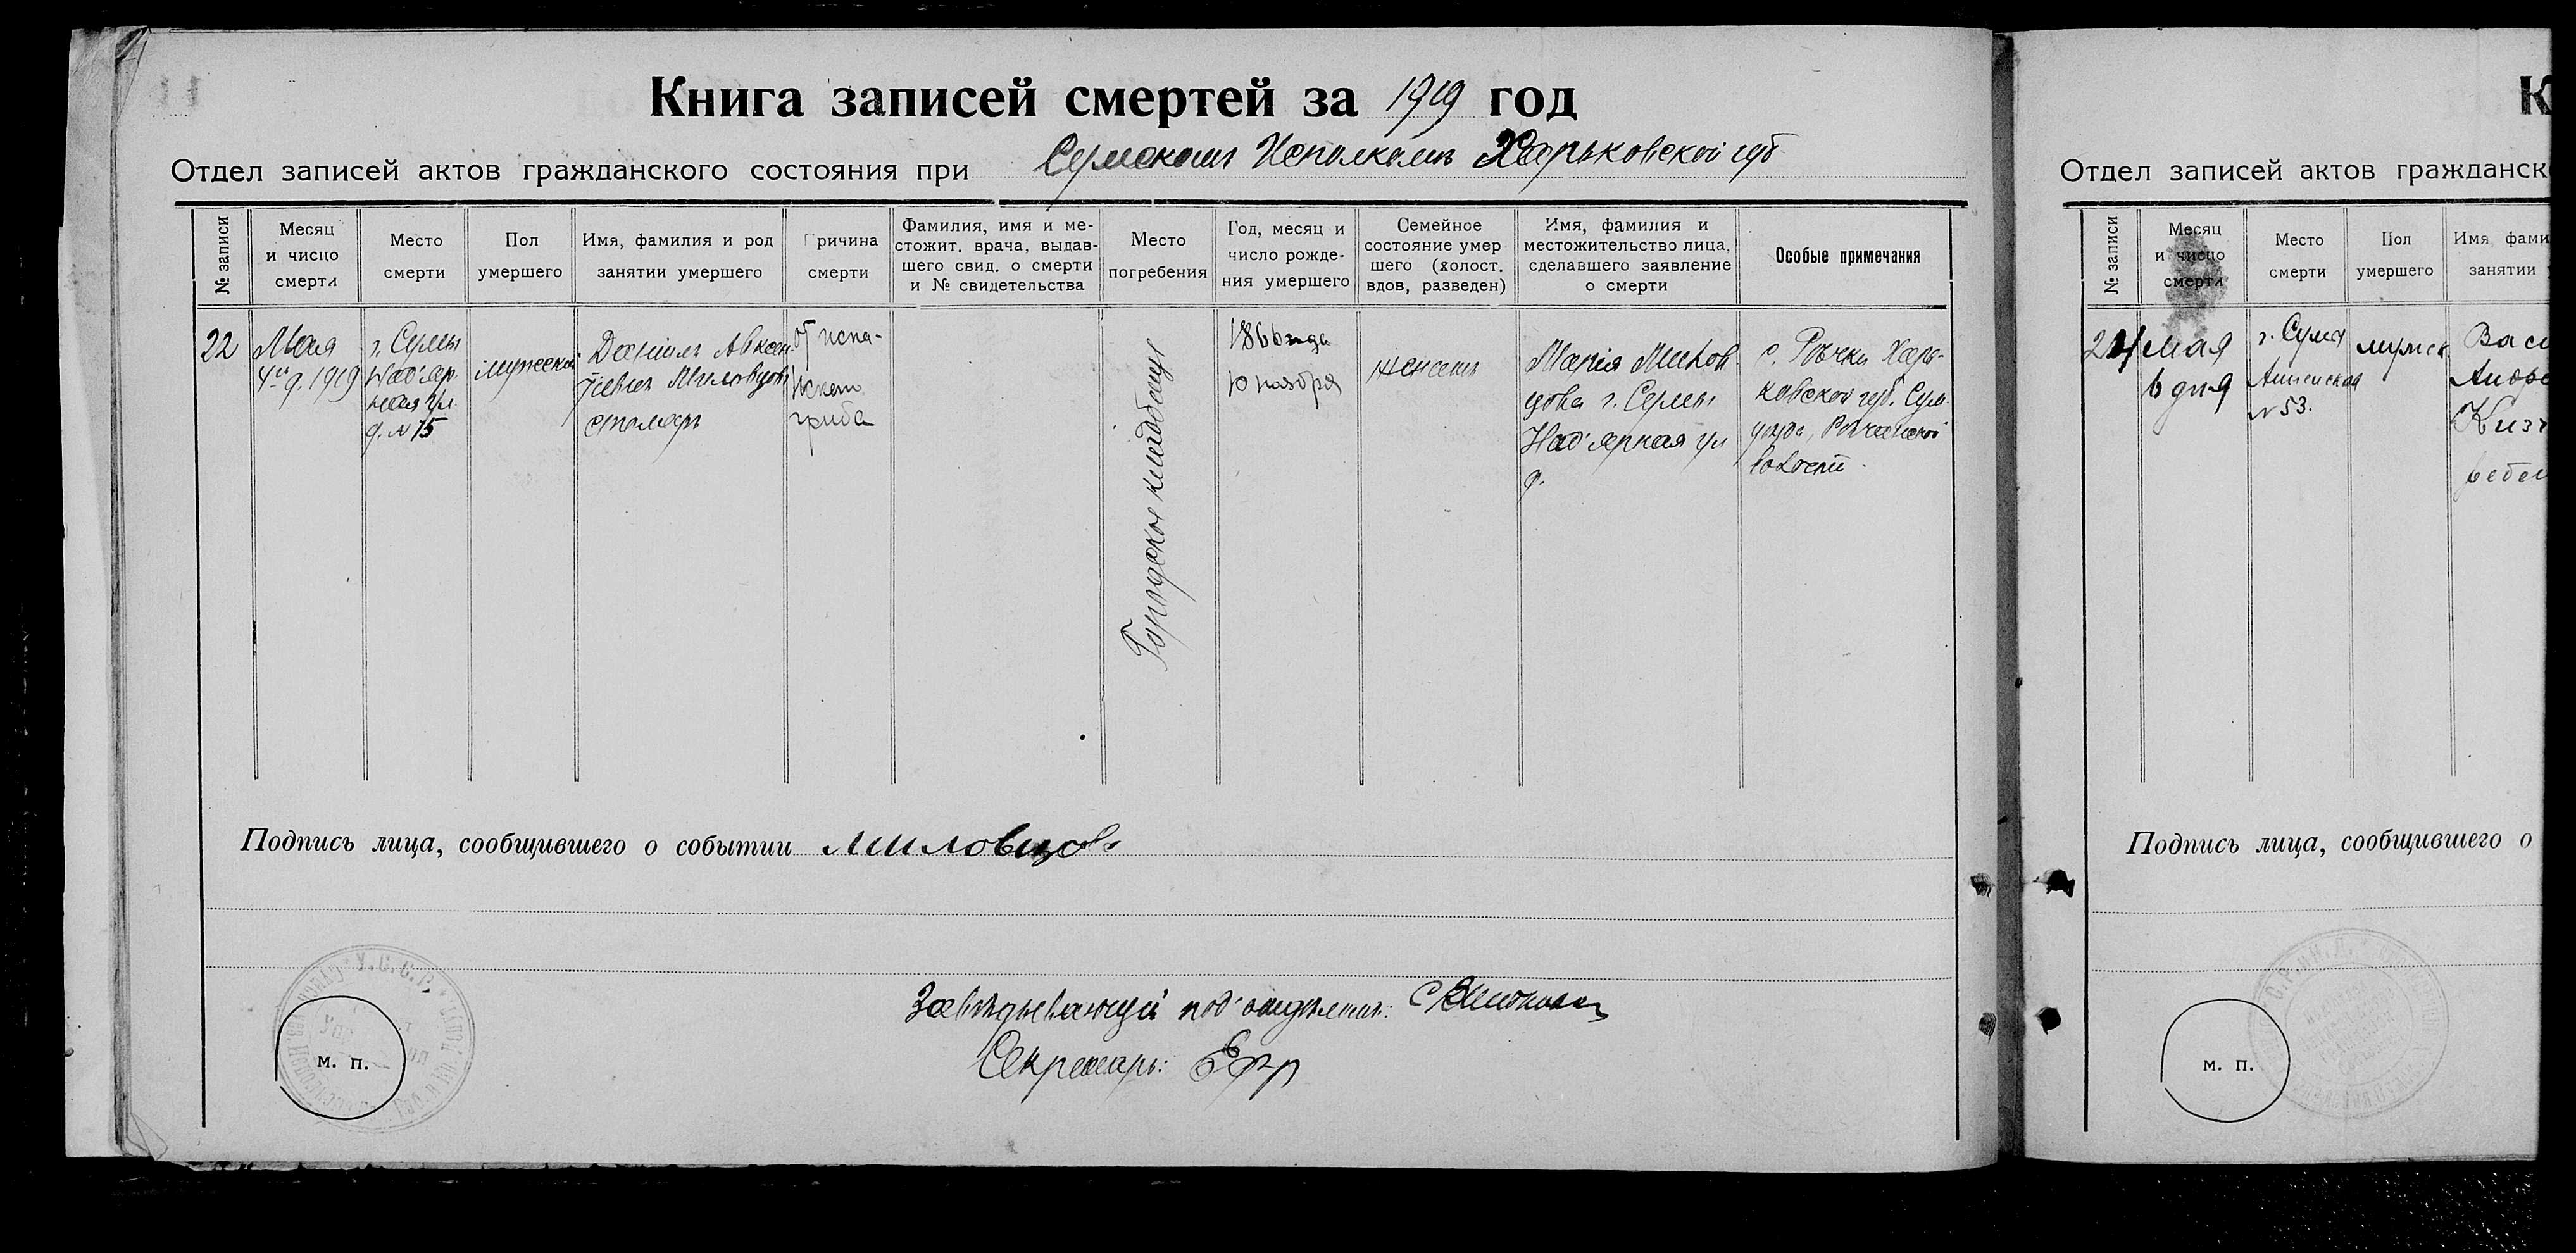 Книга записей смертей за 1919 год
Отдел записей актов гражданского состояния при Сумском Исполкоме Харьковской губ
№ записи
Месяц
и число
смерти
Место
смерти
Пол
умершего
Имя, фамилия и род
занятии умершего
Причина
смерти
Фамилия, имя и ме-
стожит. врача, выдав-
шего свид. о смерти
и № свидетельства
Место
погребения
Год, месяц и
число рожде-
ния умершего
Семейное
состояние умер
шего (холост.
вдов, разведен)
Имя, фамилия и
местожительство лица,
сделавшего заявление
о смерти
Особые примечания
22
Мая
4го д. 1919
г. Сумы
Над'яр
ная ул
д. № 15
мужской
Данiилъ Авксен-
тiевич Миловцов
столяръ
Городское кладбище
1866 года
ноября
женатъ
Марiя Милов
цова г. Сумы
Над'ярная ул
д.
с. Рѣчки Харь-
ковской губ. Сум.
уѣзда, Рѣчанской
волости.
Подпись лица, сообщившего о событии Миловцов
Завѣдывающій под'отдѣломъ:
Секретарь:
У.С.С.Р.
м. п.
К
Отдел записей актов гражданск
№ записи
Месяц
и число
смерти
Место
смерти
Пол
умершего
Имя, фами
занятии
24
мая
6 дня
г. Сумы
№ 53.
мужск
Васи
Андре
Подпись лица, сообщившего о
м. п.